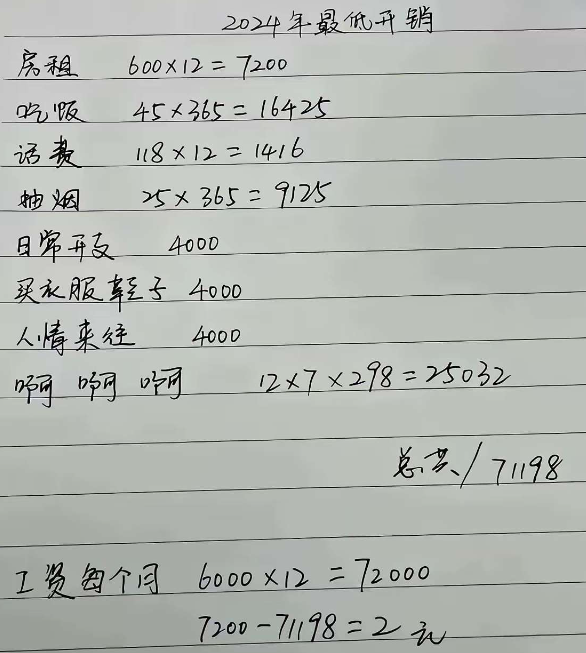 2024年最低开销
房租 600×12=7200
吃饭 45×365=16425
话费 118×12=1416
抽烟 25×365=9125
日常开支 4000
买衣服鞋子 4000
人情来往 4000
啊 啊 啊 12×7×298=25032
总共/71198
工资每个月 6000×12=72000
7200-71198=2元